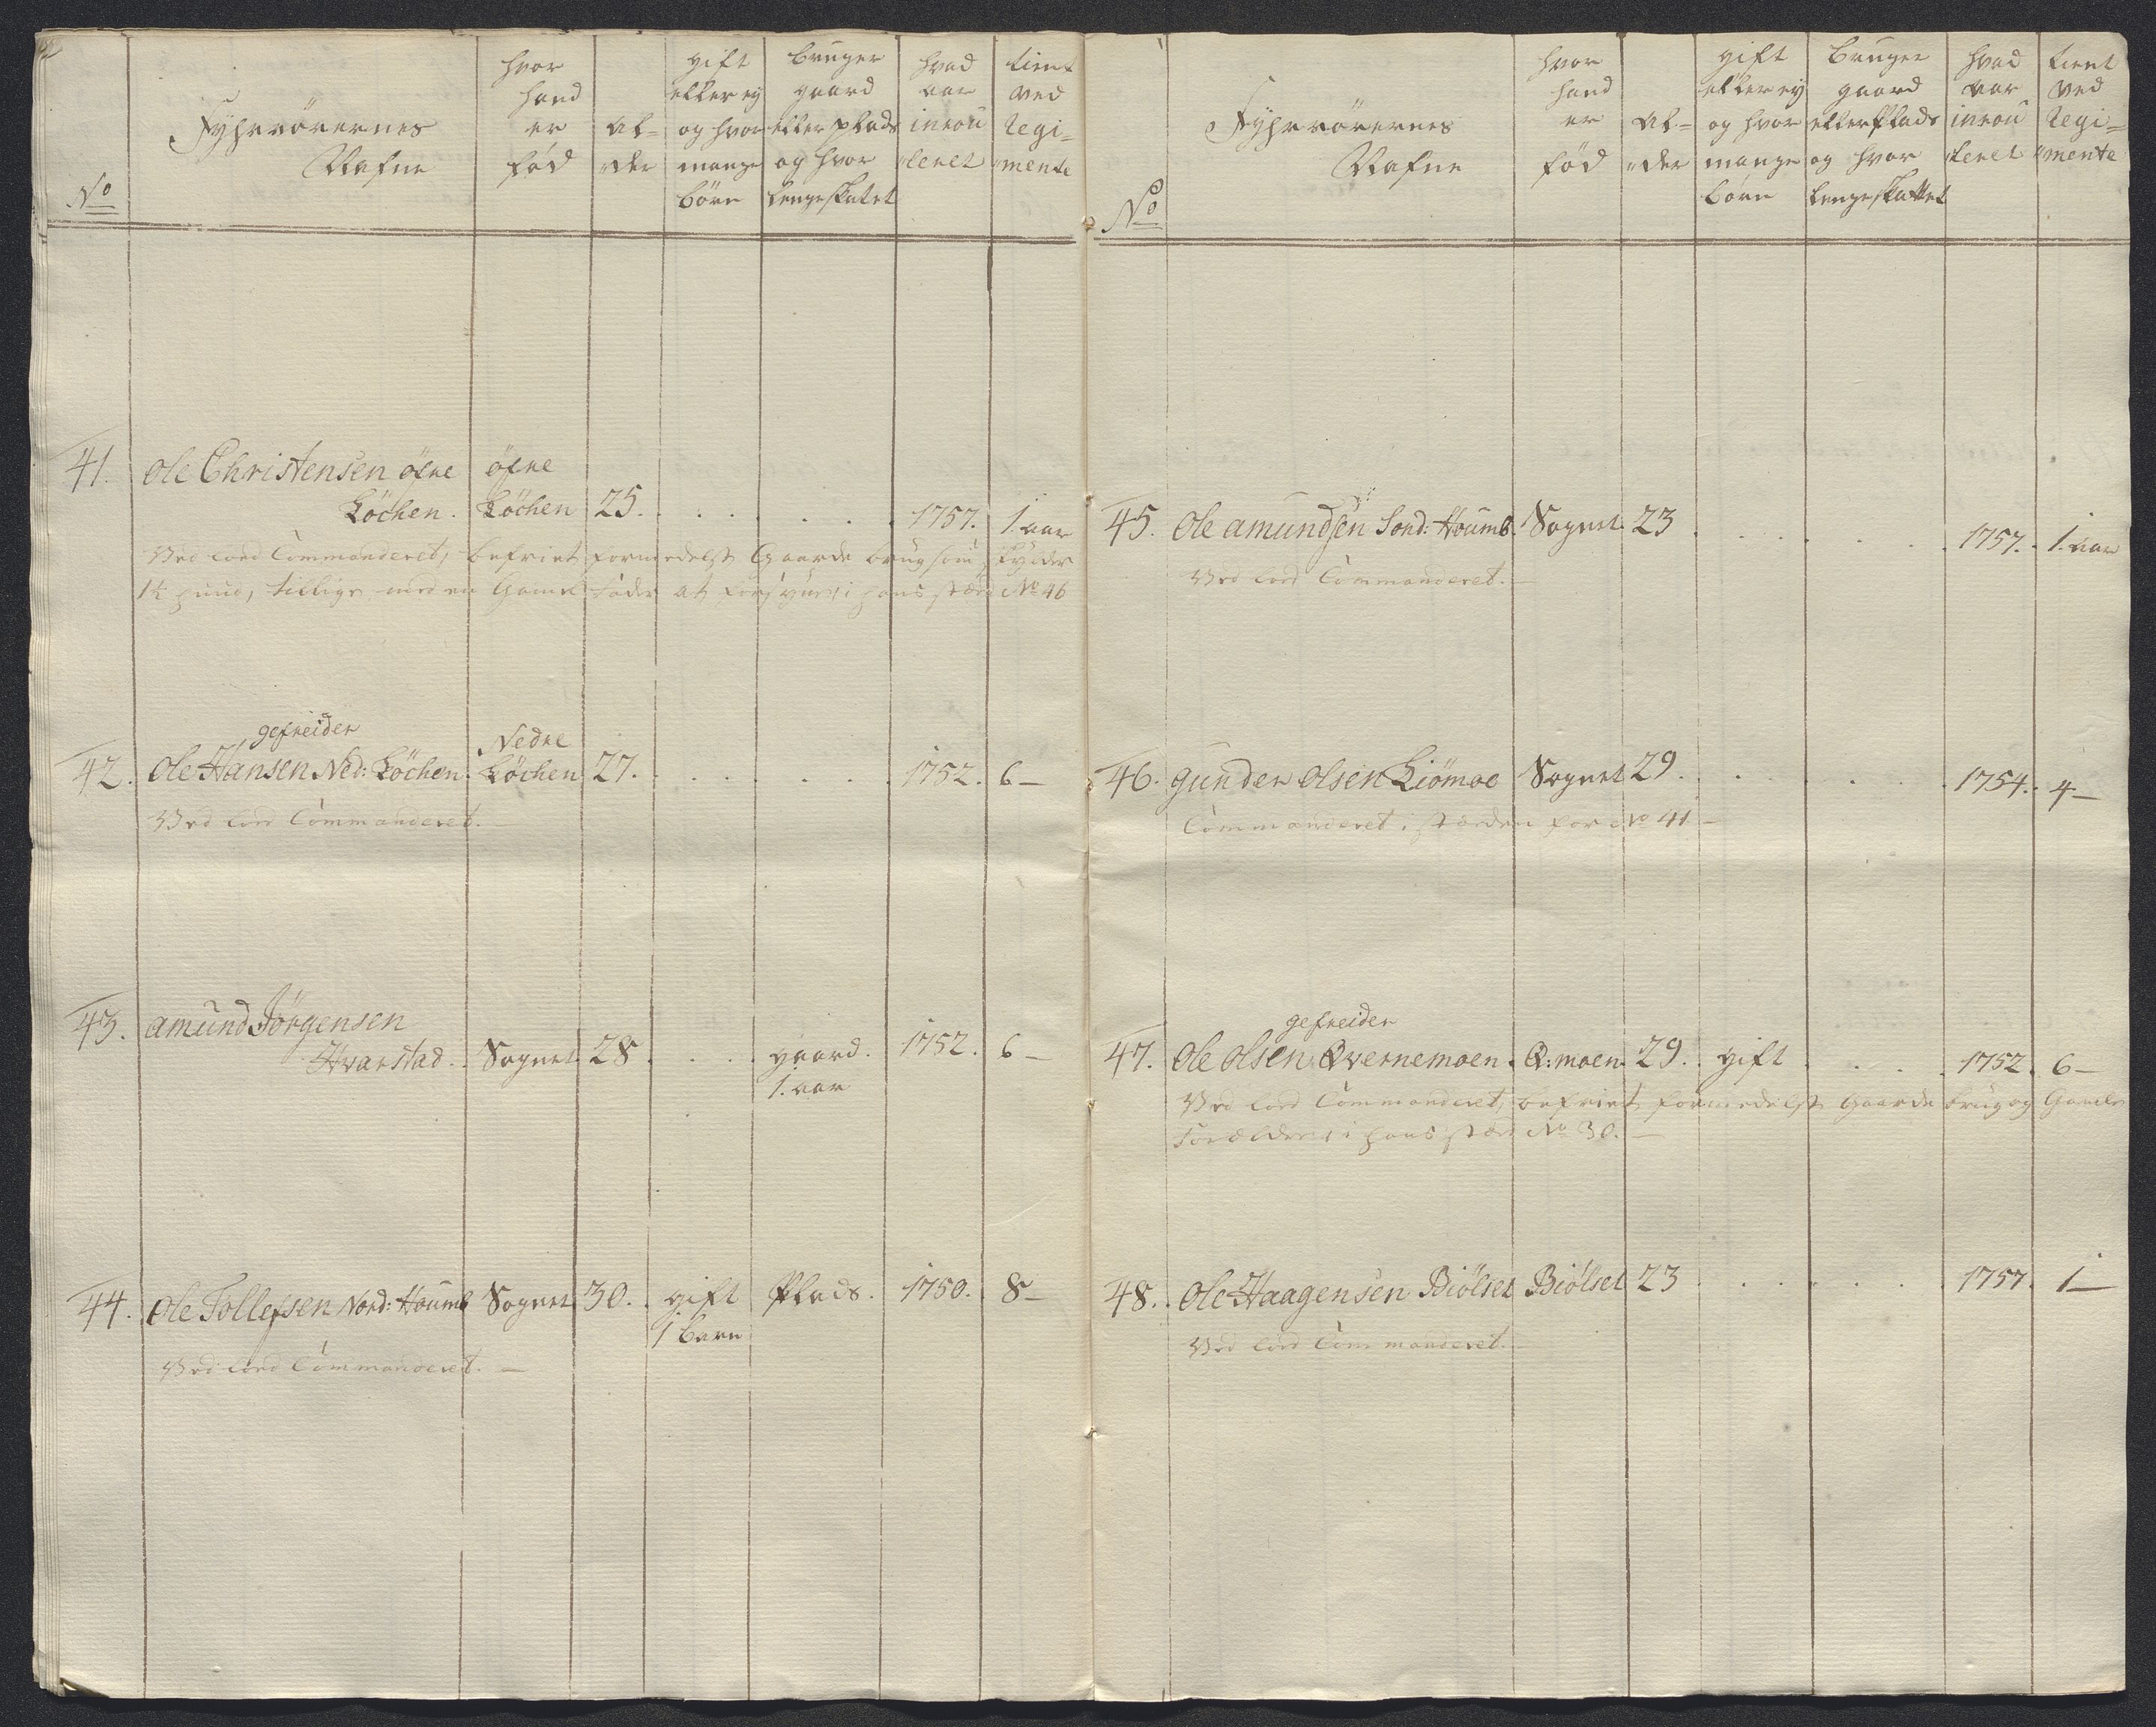 No
Fyhrrörernes
Nafne
hvor
hand
er
fød
Al=
"der
gift
eller ey
og hvor
mange
börn
bruger
gaard
eller plads
og hvor
lenge skatet
hvad
aar
inrou
"leret
tient
ved
Regi=
"mente
41. Ole Christensen öfre öfre
Köchen. Köchen 25. . . . . . . 1757. 1. aar
Ved Cord Commanderet, befriet formedelst Gaards brug som skylder
1½ hund, tillige med en Gamel Fader at forsyne, i hans stæd No 46
gefreider Nedre
42. Ole Hansen Ned: Köchen. Köchen 27. . . . . . . 1752. 6 –
Ved Cord Commanderet.
43. Amund Jörgensen
Hvarstad. Sognet 28. . . . gaard. 1752. 6 –
1. aar
44. Ole Tollefsen Nord: Houmb Sognet 30. gift Plads. 1750. 8 –
1 barn
Ved Cord Commanderet. –
No
Fyhrrörernes
Nafne
hvor
hand
er
fød
Al=
"der
gift
eller ey
og hvor
mange
börn
bruger
gaard
eller Plads
og hvor
lenge skattet
hvad
aar
inrou
"leret
tient
ved
Regi=
"mente
45. Ole Amundsen Sond: Houmb. Sognet 23 . . . . . . 1757. 1. aar
Ved Cord Commanderet. –
46. Gunder Olsen Kiömoe Sognet 29. . . . . . 1754. 4 –
Commanderet i stæden for No 41 –
gefreider
47. Ole Olsen Qvernemoen. Q: moen. 29. gift . . . . 1752. 6 –
Ved Cord Commanderet, befriet formedelst Gaards brug og Gamle
Forældre, i hans stæd No 30. –
48. Ole Haagensen Biölset Biölset 23 . . . . . . 1757. 1 –
Ved Cord Commanderet. –